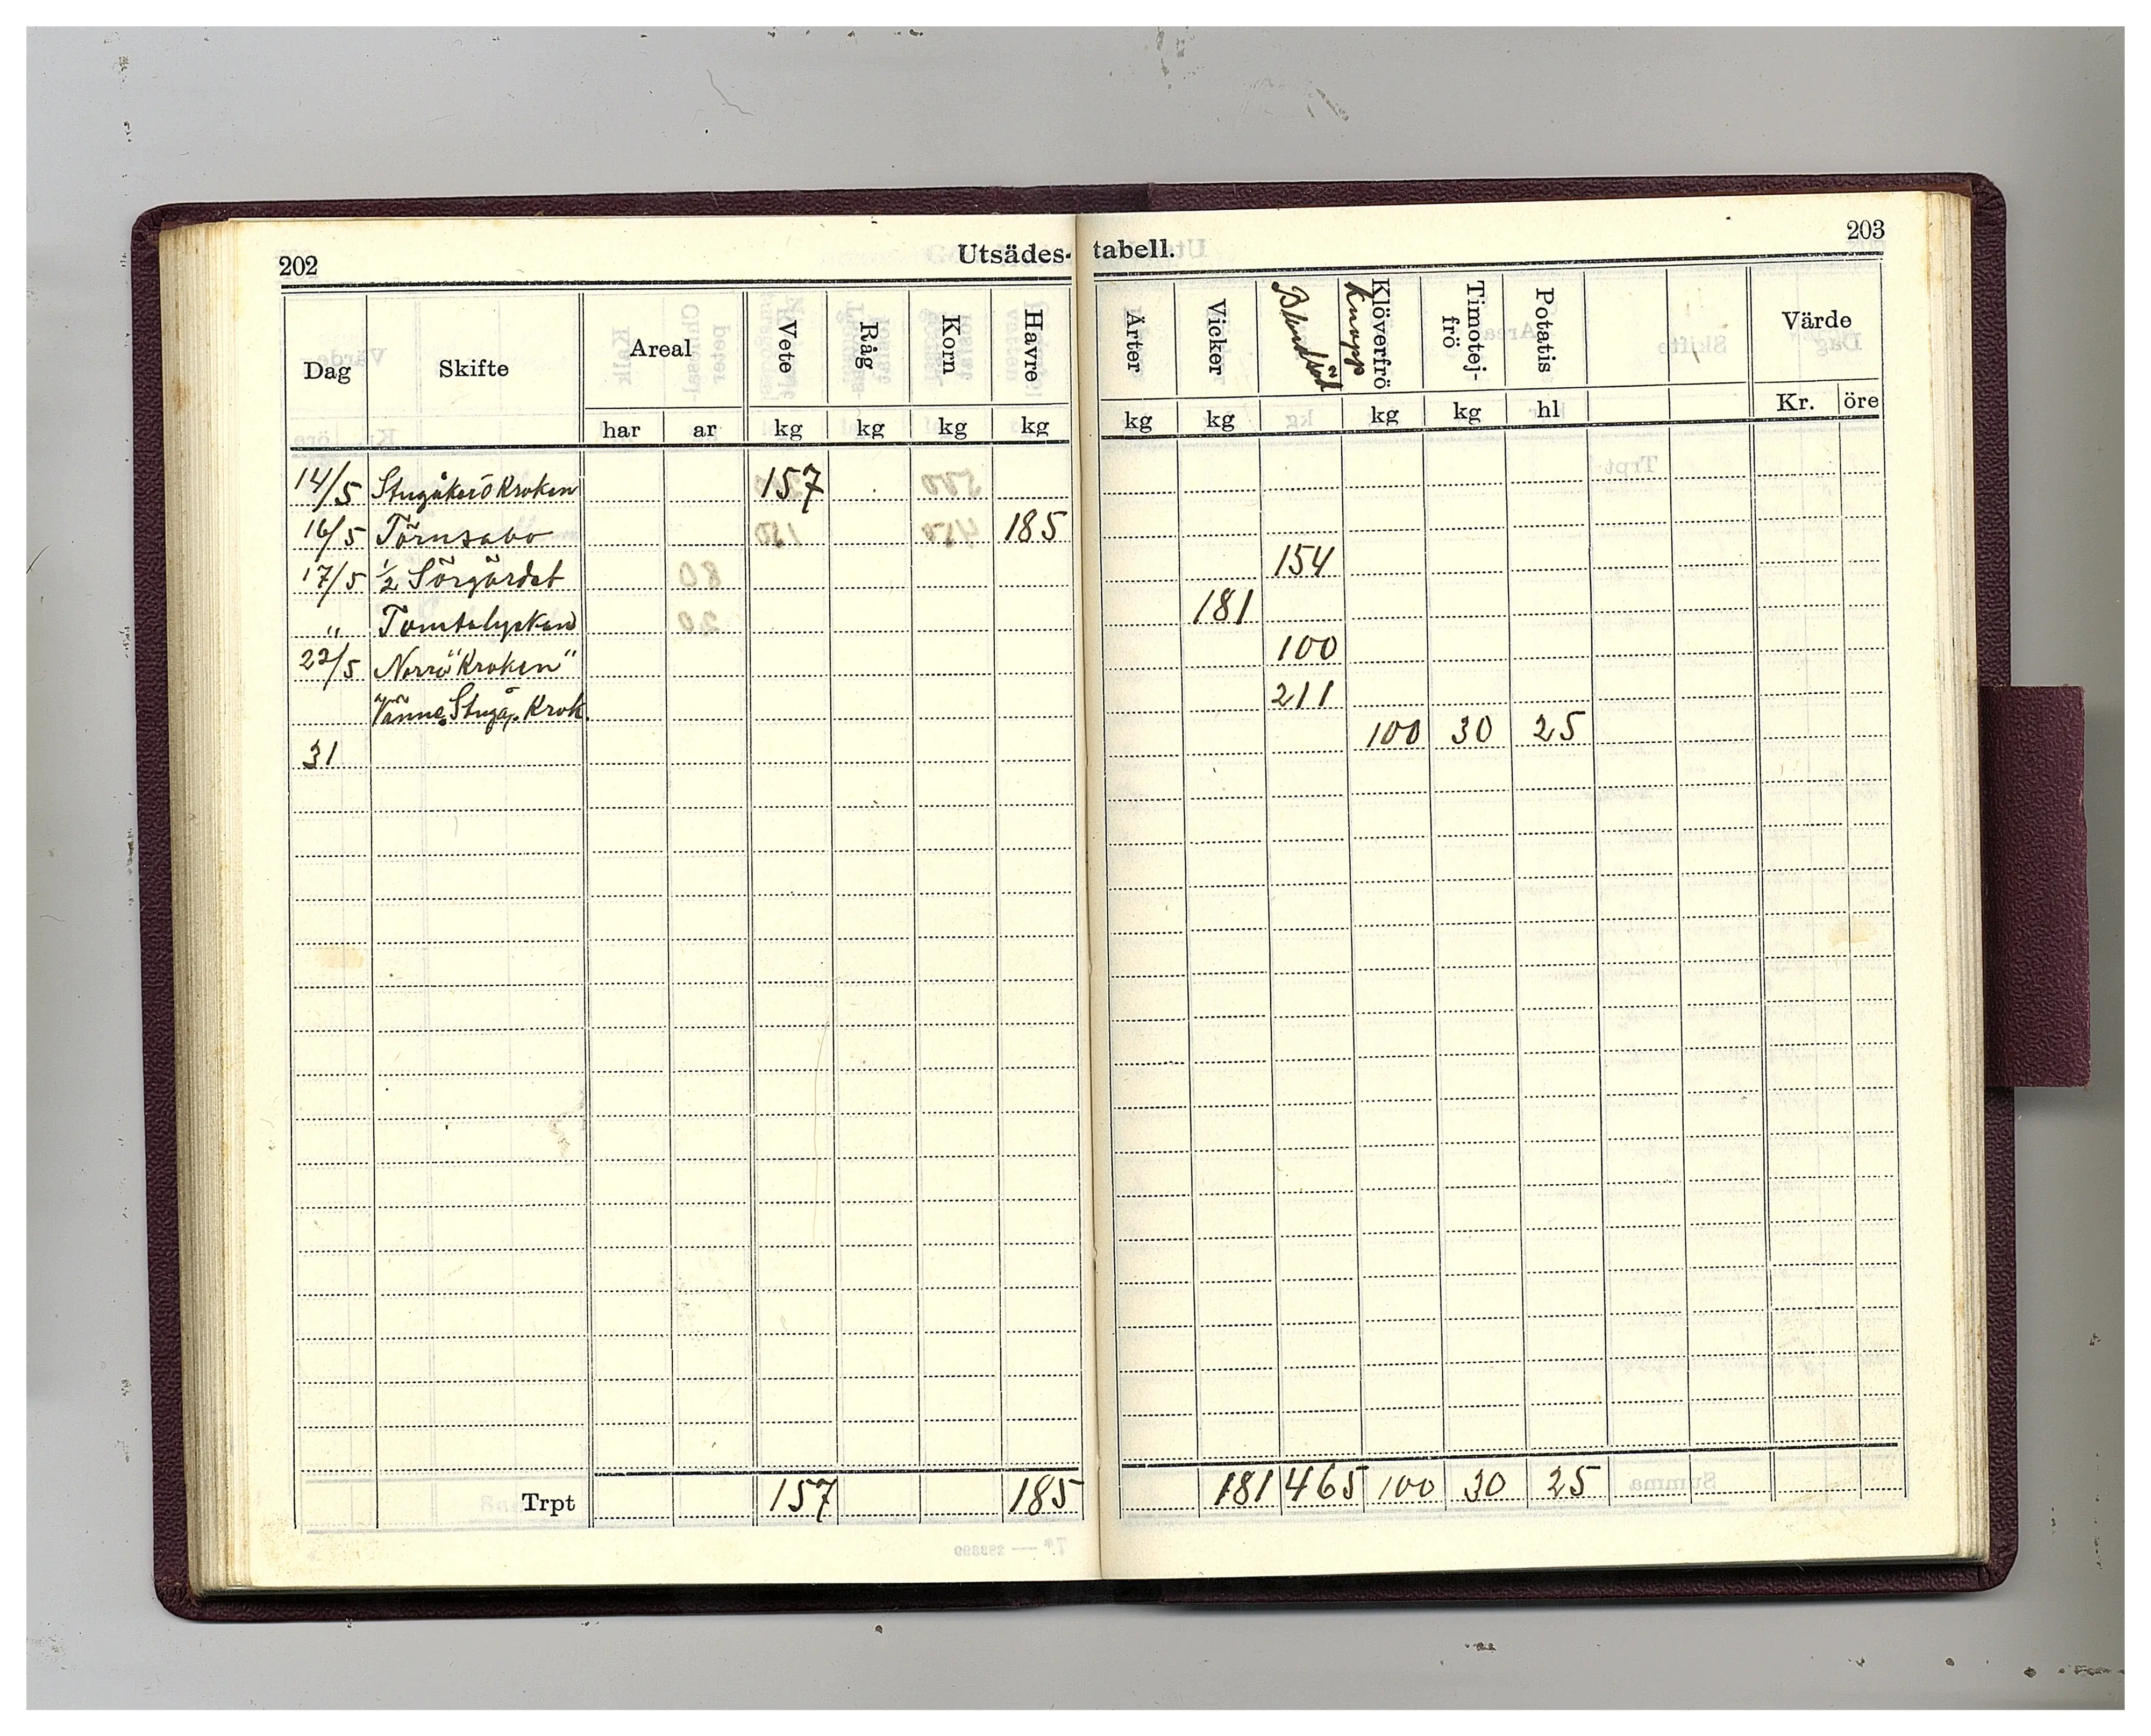 202
Utsädes-tabell.
203
Dag Skifte Areal Vete Råg Korn Havre Ärter Vicker Blandsäd Knopp Klöverfrö Timotej-frö Potatis Värde
har ar kg kg kg kg kg kg kg kg hl Kr. öre
14/5 Stugåker ö Kroken 157
16/5 Törnsabo 185
17/5 1/2 Sörgärdet 154
" Tomtalyckan 181
22/5 Norrö "Kroken" 100
Vänne Stugå. Krok. 211
31 100 30 25
Trpt 157 185 181 465 100 30 25